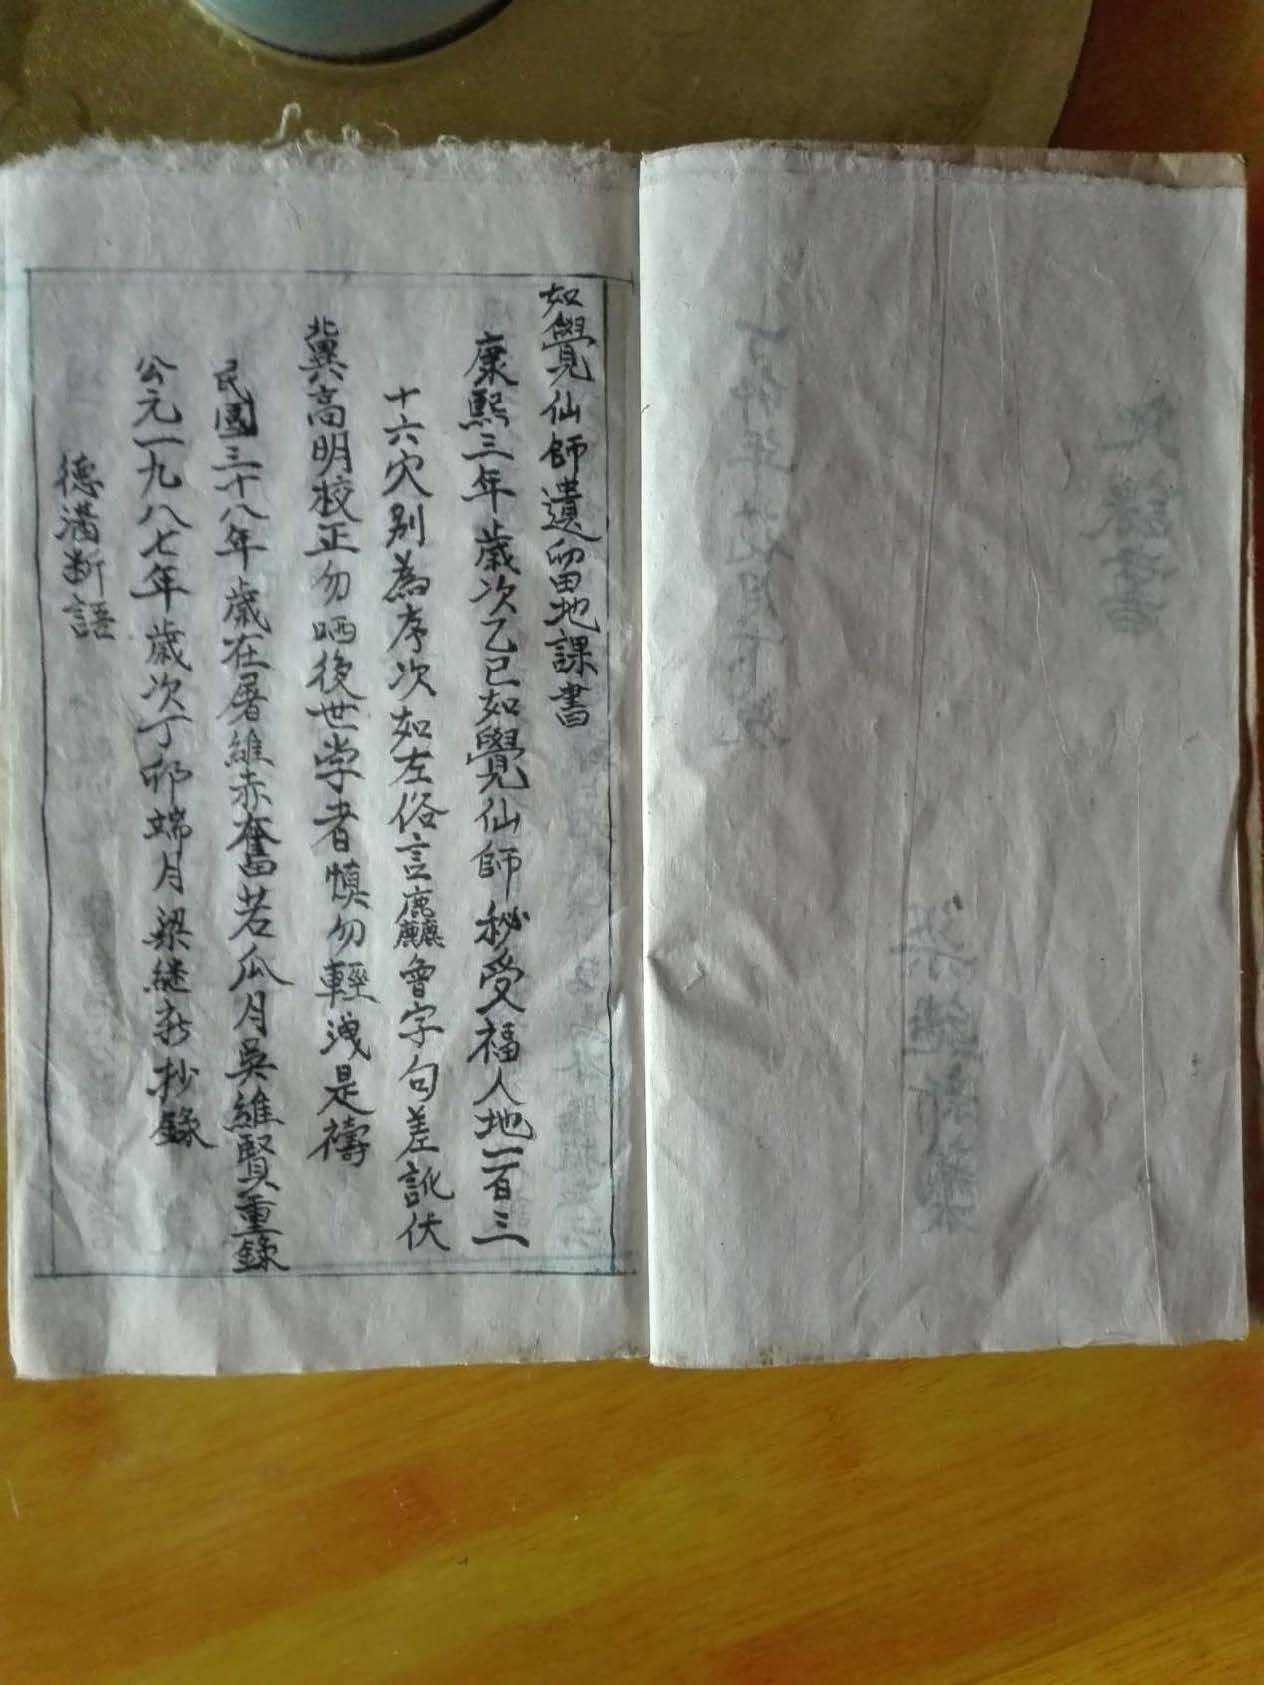 如覺仙師遺留地課書
康熙三年歲次乙巳如覺仙師秘受福人地一百三
十六穴别為序次如左俗言麤會字句差訛伏
冀高明校正勿哂後世学者慎勿輕洩是禱
民國三十八年歲在屠維赤奮若瓜月吳維賢重錄
公元一九八七年歲次丁卯端月梁継新抄錄
德滿断語